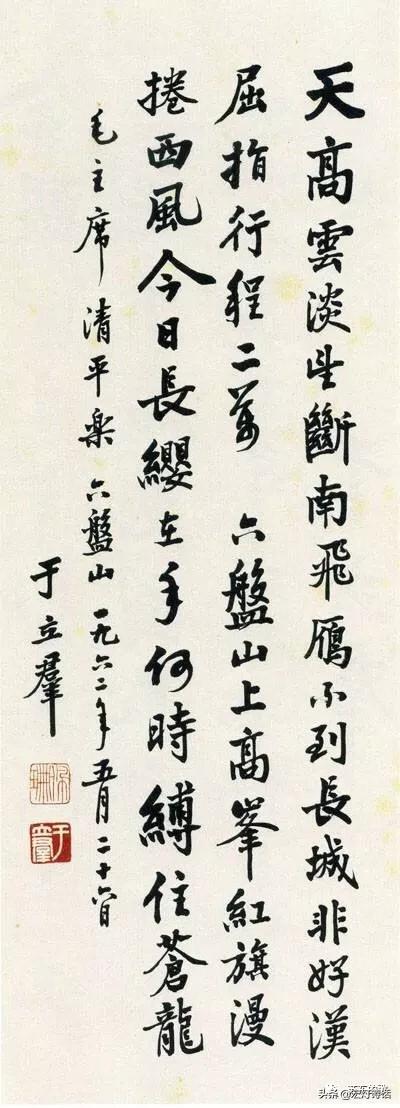 天高雲淡望斷南飛鴈不到長城非好漢
屈指行程二萬 六盤山上高峯紅旗漫
捲西風今日長纓在手何時縛住蒼龍
毛主席 清平楽 六盤山 一九六二年五月二十六日
于立羣